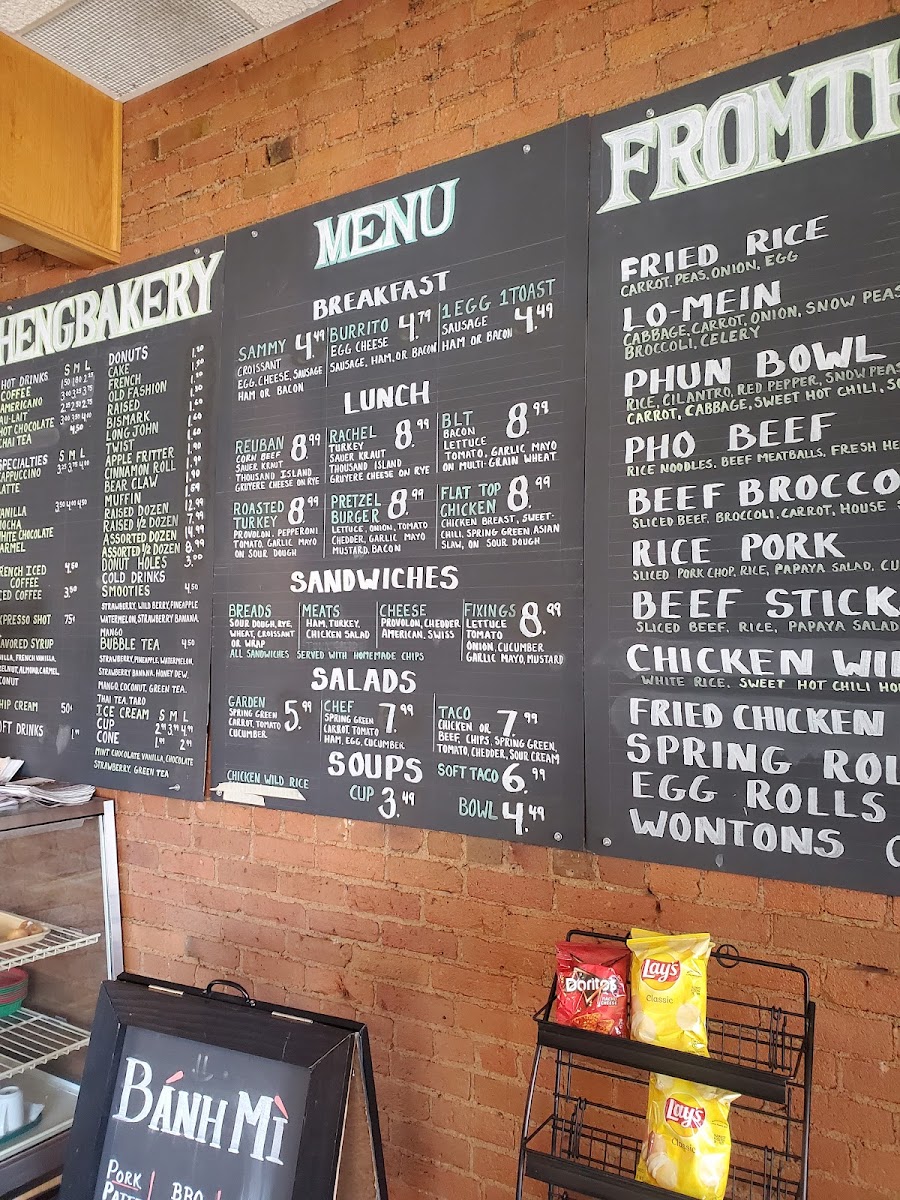 HENGBAKERY
HOT DRINKS S M L
COFFEE
AMERICANO
AU-LAIT
HOT CHOCOLATE
CHAI TEA
SPECIALTIES S M L
CAPPUCCINO
LATTE
VANILLA
MOCHA
WHITE CHOCOLATE
CARMEL
FRENCH ICED 4.50
COFFEE
ICED COFFEE 3.50
EXPRESSO SHOT 75¢
FLAVORED SYRUP
VANILLA, FRENCH VANILLA,
HAZELNUT, ALMOND, CARMEL
COCONUT
WHIP CREAM 50¢
SOFT DRINKS
DONUTS
CAKE
FRENCH
OLD FASHION
RAISED
BISMARK
LONG JOHN
TWIST
APPLE FRITTER
CINNAMON ROLL
BEAR CLAW
MUFFIN
RAISED DOZEN 12.99
RAISED 1/2 DOZEN 7.99
ASSORTED DOZEN 14.99
ASSORTED 1/2 DOZEN 8.99
DONUT HOLES 3.00
COLD DRINKS
SMOOTIES 4.50
STRAWBERRY, WILD BERRY, PINEAPPLE
WATERMELON, STRAWBERRY BANANA,
MANGO
BUBBLE TEA 4.50
STRAWBERRY, PINEAPPLE, WATERMELON,
STRAWBERRY BANANA, HONEY DEW,
MANGO, COCONUT, GREEN TEA,
THAI TEA, TARO
ICE CREAM S M L
CUP 2.99 3.99 4.99
CONE 1.99 2.99
MINT CHOCOLATE, VANILLA, CHOCOLATE
STRAWBERRY, GREEN TEA
MENU
BREAKFAST
SAMMY 4.49
CROISSANT
EGG, CHEESE, SAUSAGE
HAM OR BACON
BURRITO 4.79
EGG CHEESE
SAUSAGE, HAM, OR BACON
1 EGG 1 TOAST
SAUSAGE 4.49
HAM OR BACON
LUNCH
REUBAN 8.99
CORN BEEF
SAUER KRAUT
THOUSAND ISLAND
GRUYERE CHEESE ON RYE
RACHEL 8.99
TURKEY
SAUER KRAUT
THOUSAND ISLAND
GRUYERE CHEESE ON RYE
BLT 8.99
BACON
LETTUCE
TOMATO, GARLIC MAYO
ON MULTI-GRAIN WHEAT
ROASTED 8.99
TURKEY
PROVOLON, PEPPERONI
TOMATO, GARLIC MAYO
ON SOUR DOUGH
PRETZEL 8.99
BURGER
LETTUCE, ONION, TOMATO
CHEDDER, GARLIC MAYO
MUSTARD, BACON
FLAT TOP 8.99
CHICKEN
CHICKEN BREAST, SWEET-
CHILI, SPRING GREEN ASIAN
SLAW, ON SOUR DOUGH
SANDWICHES
BREADS
SOUR DOUGH, RYE,
WHEAT, CROISSANT
OR WRAP
MEATS
HAM, TURKEY,
CHICKEN SALAD
CHEESE
PROVOLON, CHEDDER
AMERICAN, SWISS
FIXINGS 8.99
LETTUCE
TOMATO
ONION, CUCUMBER
GARLIC MAYO, MUSTARD
ALL SANDWICHES SERVED WITH HOMEMADE CHIPS
SALADS
GARDEN 5.99
SPRING GREEN
CARROT, TOMATO
CUCUMBER
CHEF 7.99
SPRING GREEN
CARROT, TOMATO
HAM, EGG, CUCUMBER
TACO 7.99
CHICKEN OR
BEEF, CHIPS, SPRING GREEN,
TOMATO, CHEDDER, SOUR CREAM
SOFT TACO 6.99
SOUPS
CHICKEN WILD RICE
CUP 3.49
BOWL 4.49
FROMTH
FRIED RICE
CARROT, PEAS, ONION, EGG
LO-MEIN
CABBAGE, CARROT, ONION, SNOW PEAS
BROCCOLI, CELERY
PHUN BOWL
RICE, CILANTRO, RED PEPPER, SNOW PEAS
CARROT, CABBAGE, SWEET HOT CHILI, SO
PHO BEEF
RICE NOODLES, BEEF MEATBALLS, FRESH HE
BEEF BROCCO
SLICED BEEF, BROCCOLI, CARROT, HOUSE S
RICE PORK
SLICED PORK CHOP, RICE, PAPAYA SALAD, CU
BEEF STICK
SLICED BEEF, RICE, PAPAYA SALAD
CHICKEN WIN
WHITE RICE, SWEET HOT CHILI HO
FRIED CHICKEN
SPRING ROL
EGG ROLLS
WONTONS
Doritos
Lay's
Classic
Lay's
Classic
BÁNH MÌ
PORK
BBQ